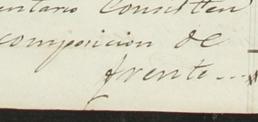 entario Consisten
composicion de
frente...